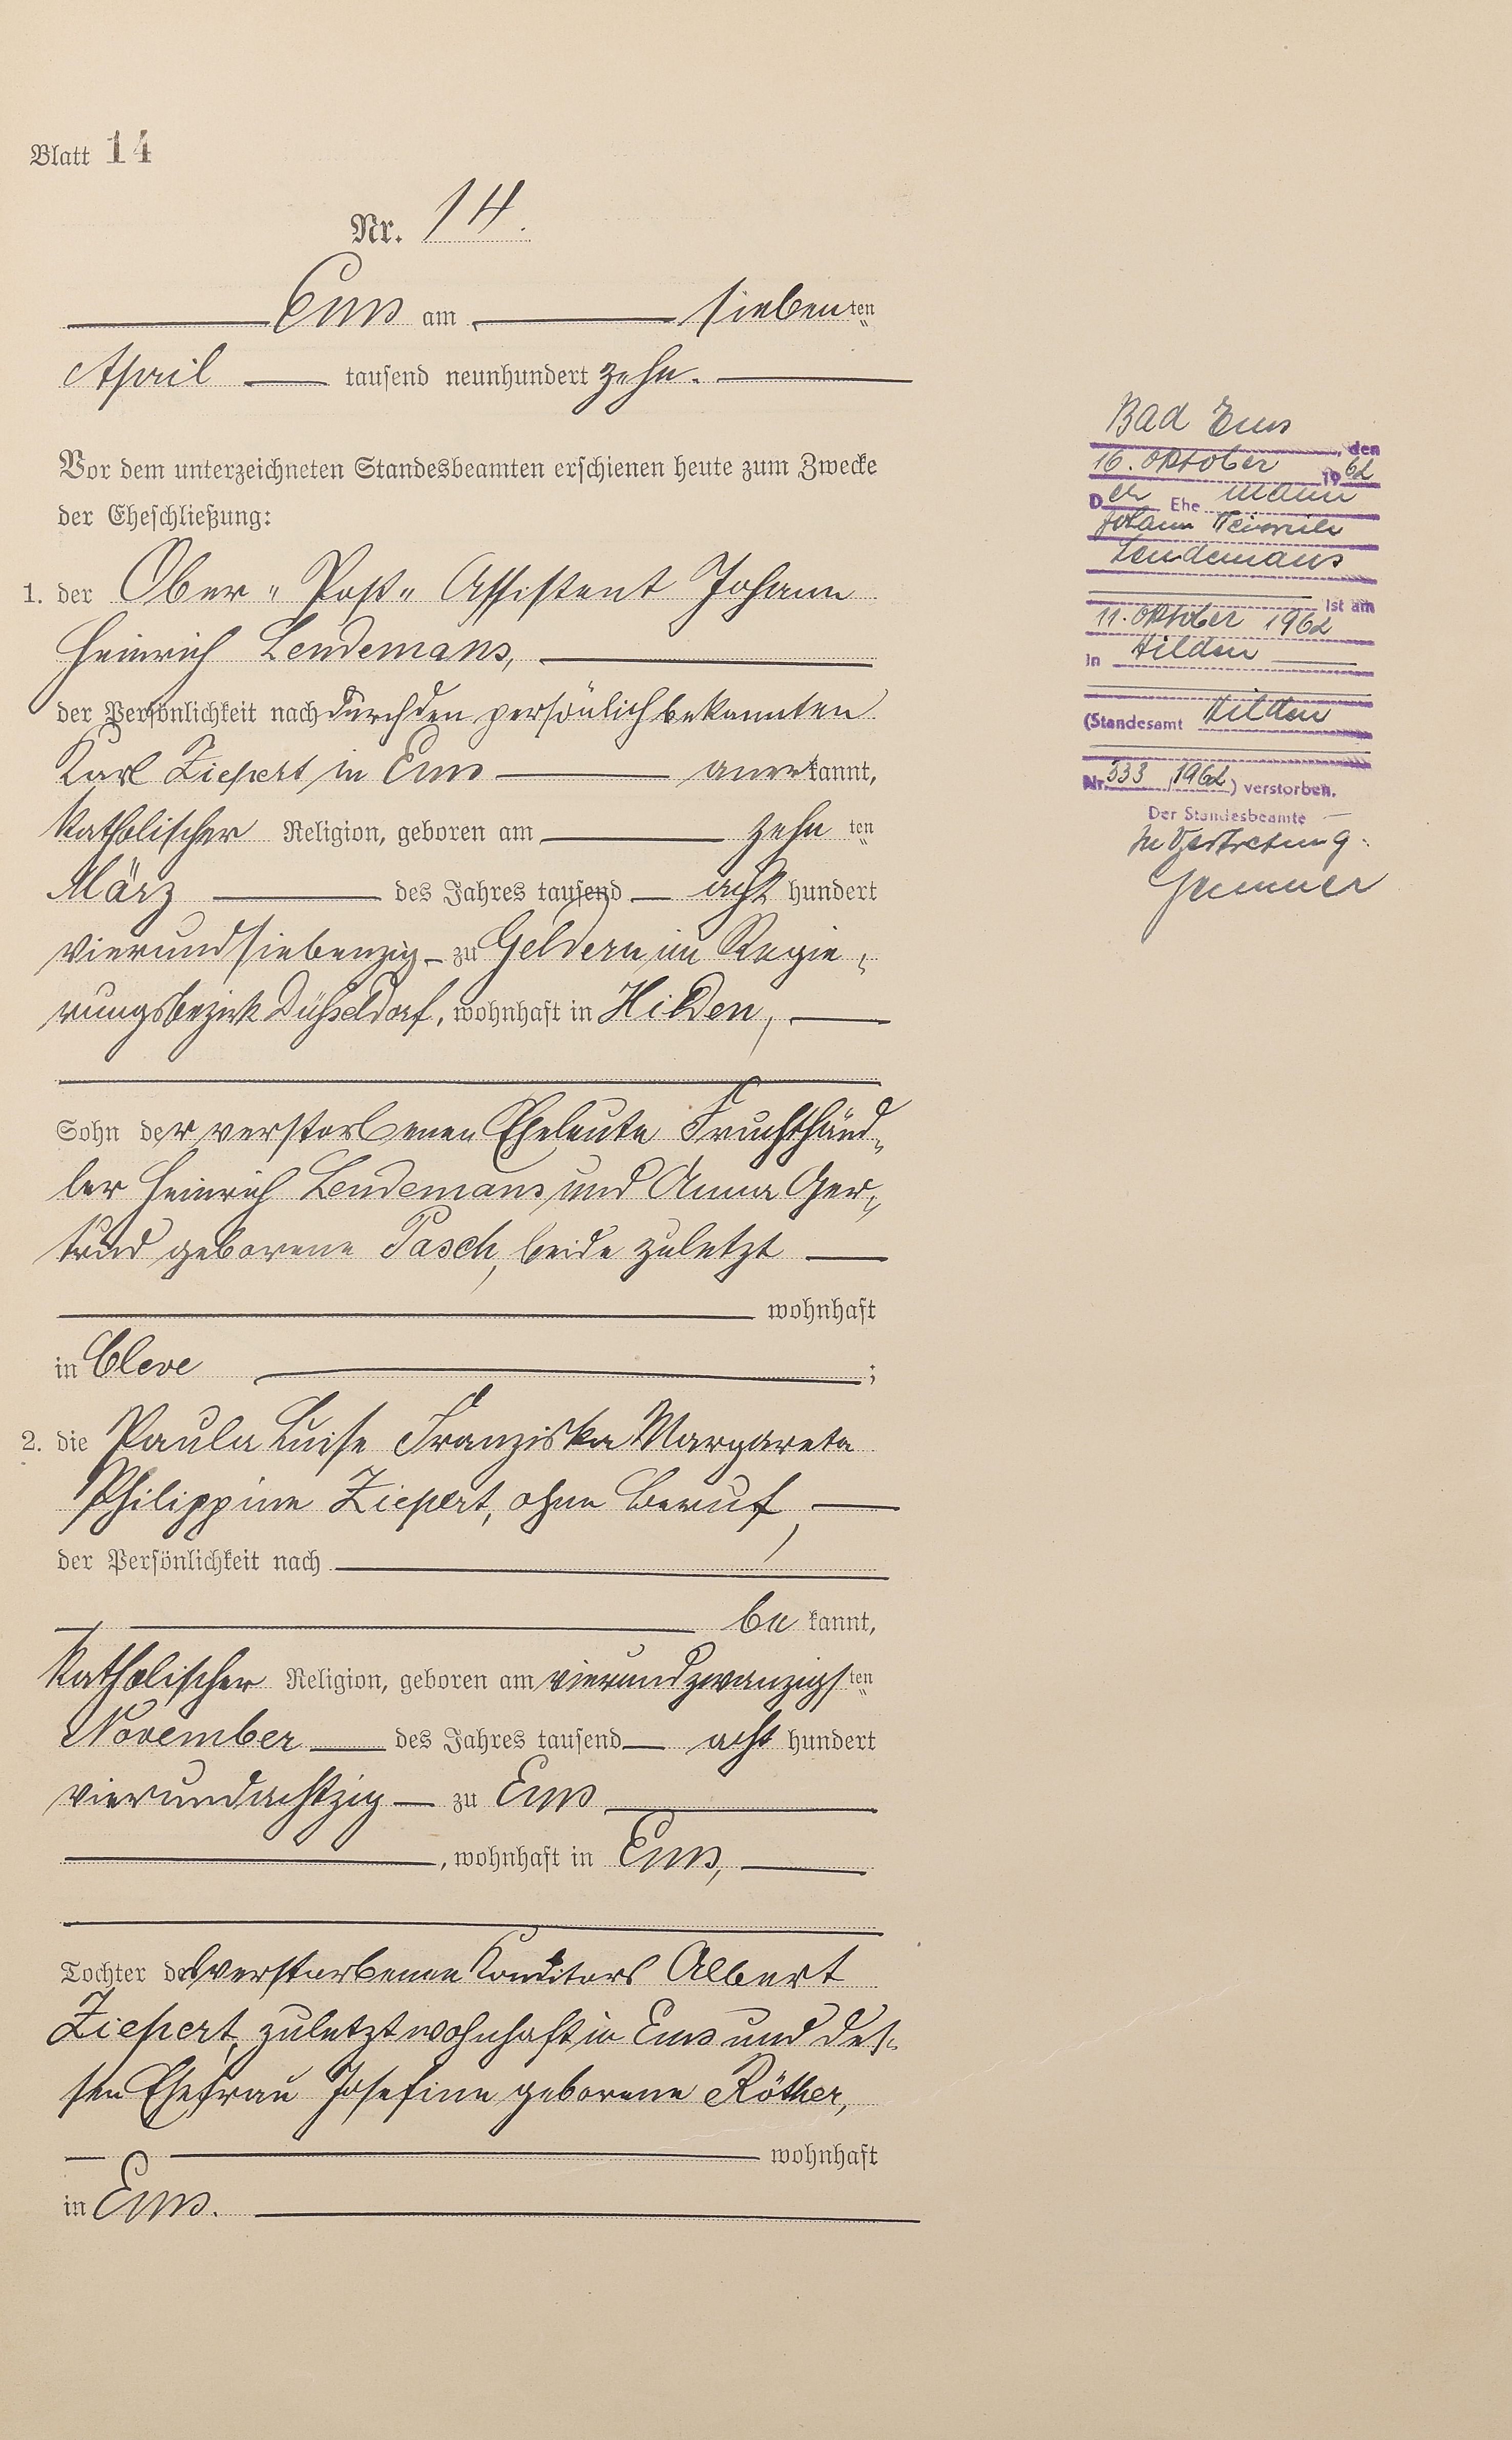 Blatt 14
Nr. 14.
Ems am siebenten
April tausend neunhundert zehn.
Vor dem unterzeichneten Standesbeamten erschienen heute zum Zwecke
der Eheschließung:
1. der Ober-Post-Assistent Johann
Heinrich Lendemans,
der Persönlichkeit nach durch den persönlich bekannten
Karl Ziepert in Ems anerkannt,
katholischer Religion, geboren am zehnten
März des Jahres tausend acht hundert
vierundsiebenzig zu Geldern im Regie-
rungsbezirk Düsseldorf, wohnhaft in Hilden,
Sohn der verstorbenen Eheleute Fruchthänd-
ler Heinrich Lendemans und Anna Ger-
trud geborene Pasch, beide zuletzt
wohnhaft
in Cleve ;
2. die Paula Luise Franziska Margareta
Philippine Ziepert, ohne Beruf,
der Persönlichkeit nach
be kannt,
katholischer Religion, geboren am vierundzwanzigsten
November des Jahres tausend acht hundert
vierundachtzig zu Ems
, wohnhaft in Ems,
Tochter des verstorbenen Konditors Albert
Ziepert, zuletzt wohnhaft in Ems und des-
sen Ehefrau Josefine geborene Röther,
wohnhaft
in Ems.
Bad Ems, den
16. Oktober 1962
Der Ehemann
Johann Heinrich
Lendemans
ist am
11. Oktober 1962
in Hilden
(Standesamt Hilden
Nr. 533/1962) verstorben.
Der Standesbeamte
In Vertretung: